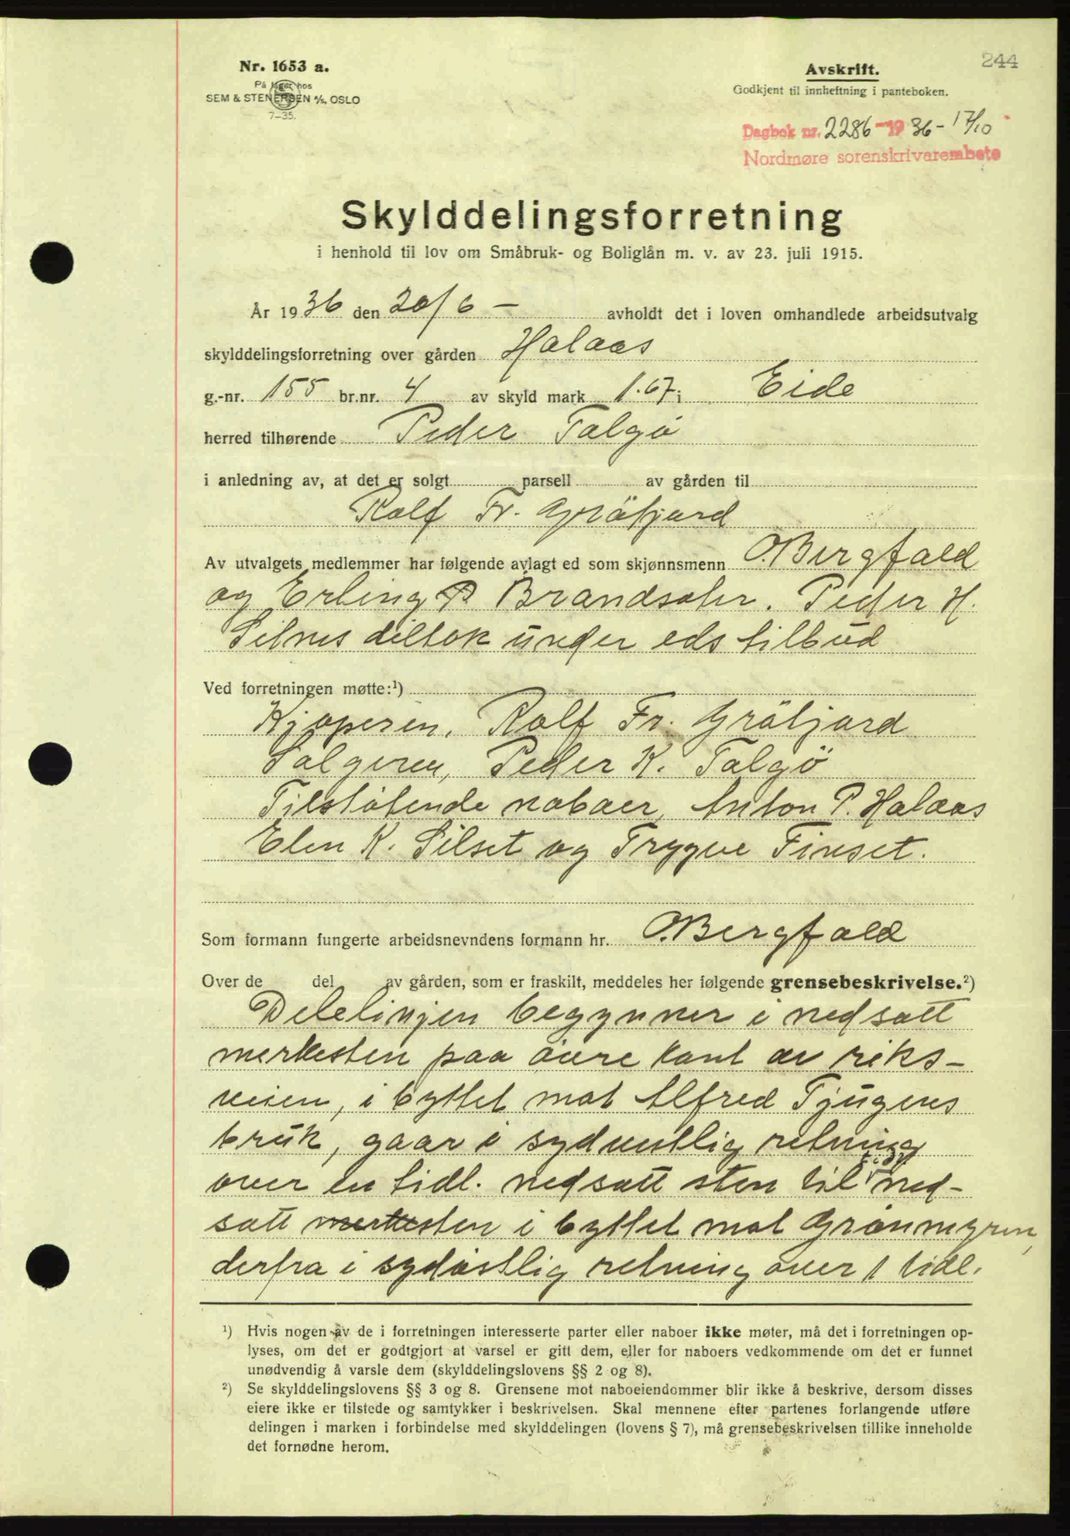 244
Nr. 1653 a.
På lager hos
SEM & STENERSEN A/S, OSLO
7-35.
Avskrift.
Godkjent til innheftning i panteboken.
Dagbok nr. 2286-1936-17/10
Nordmøre sorenskrivarembete
Skylddelingsforretning
i henhold til lov om Småbruk- og Boliglån m. v. av 23. juli 1915.
År 1936 den 20/6 - avholdt det i loven omhandlede arbeidsutvalg
skylddelingsforretning over gården Halaas
g.-nr. 155 br.nr. 4 av skyld mark 1.67 i Eide
herred tilhørende Peder Talgö
i anledning av, at det er solgt parsell av gården til
Rolf Fr. Gräfjard
Av utvalgets medlemmer har følgende avlagt ed som skjønnsmenn O. Bergfald
og Erling Brandsäter. Peder H.
Silnes deltok under eds tilbud
Ved forretningen møtte:¹)
Kjøperen, Rolf Fr. Gräfjard
Sälgeren, Peder K. Talgö
Tilstøtende naboer, Anton P. Halaas
Elen K. Silset og Trygve Finset.
Som formann fungerte arbeidsnevndens formann hr. O. Bergfald
Over de del av gården, som er fraskilt, meddeles her følgende grensebeskrivelse.²)
Delelinjen begynner i nedsatt
merkesten paa övre kant av riks-
veien, i byttet mot Alfred Tjugens
bruk, gaar i sydvestlig retning
over en tidl. nedsatt sten til tidl. ned-
satt merkesten i byttet mot Grönmyren,
derfra i sydöstlig retning over 1 tidl.
¹) Hvis nogen av de i forretningen interesserte parter eller naboer ikke møter, må det i forretningen op-
lyses, om det er godtgjort at varsel er gitt dem, eller for naboers vedkommende om det er funnet
unødvendig å varsle dem (skylddelingslovens §§ 2 og 8).
²) Se skylddelingslovens §§ 3 og 8. Grensene mot naboeiendommer blir ikke å beskrive, dersom disses
eiere ikke er tilstede og samtykker i beskrivelsen. Skal mennene efter partenes forlangende utføre
delingen i marken i forbindelse med skylddelingen (lovens § 7), må grensebeskrivelsen tillike inneholde
det fornødne herom.